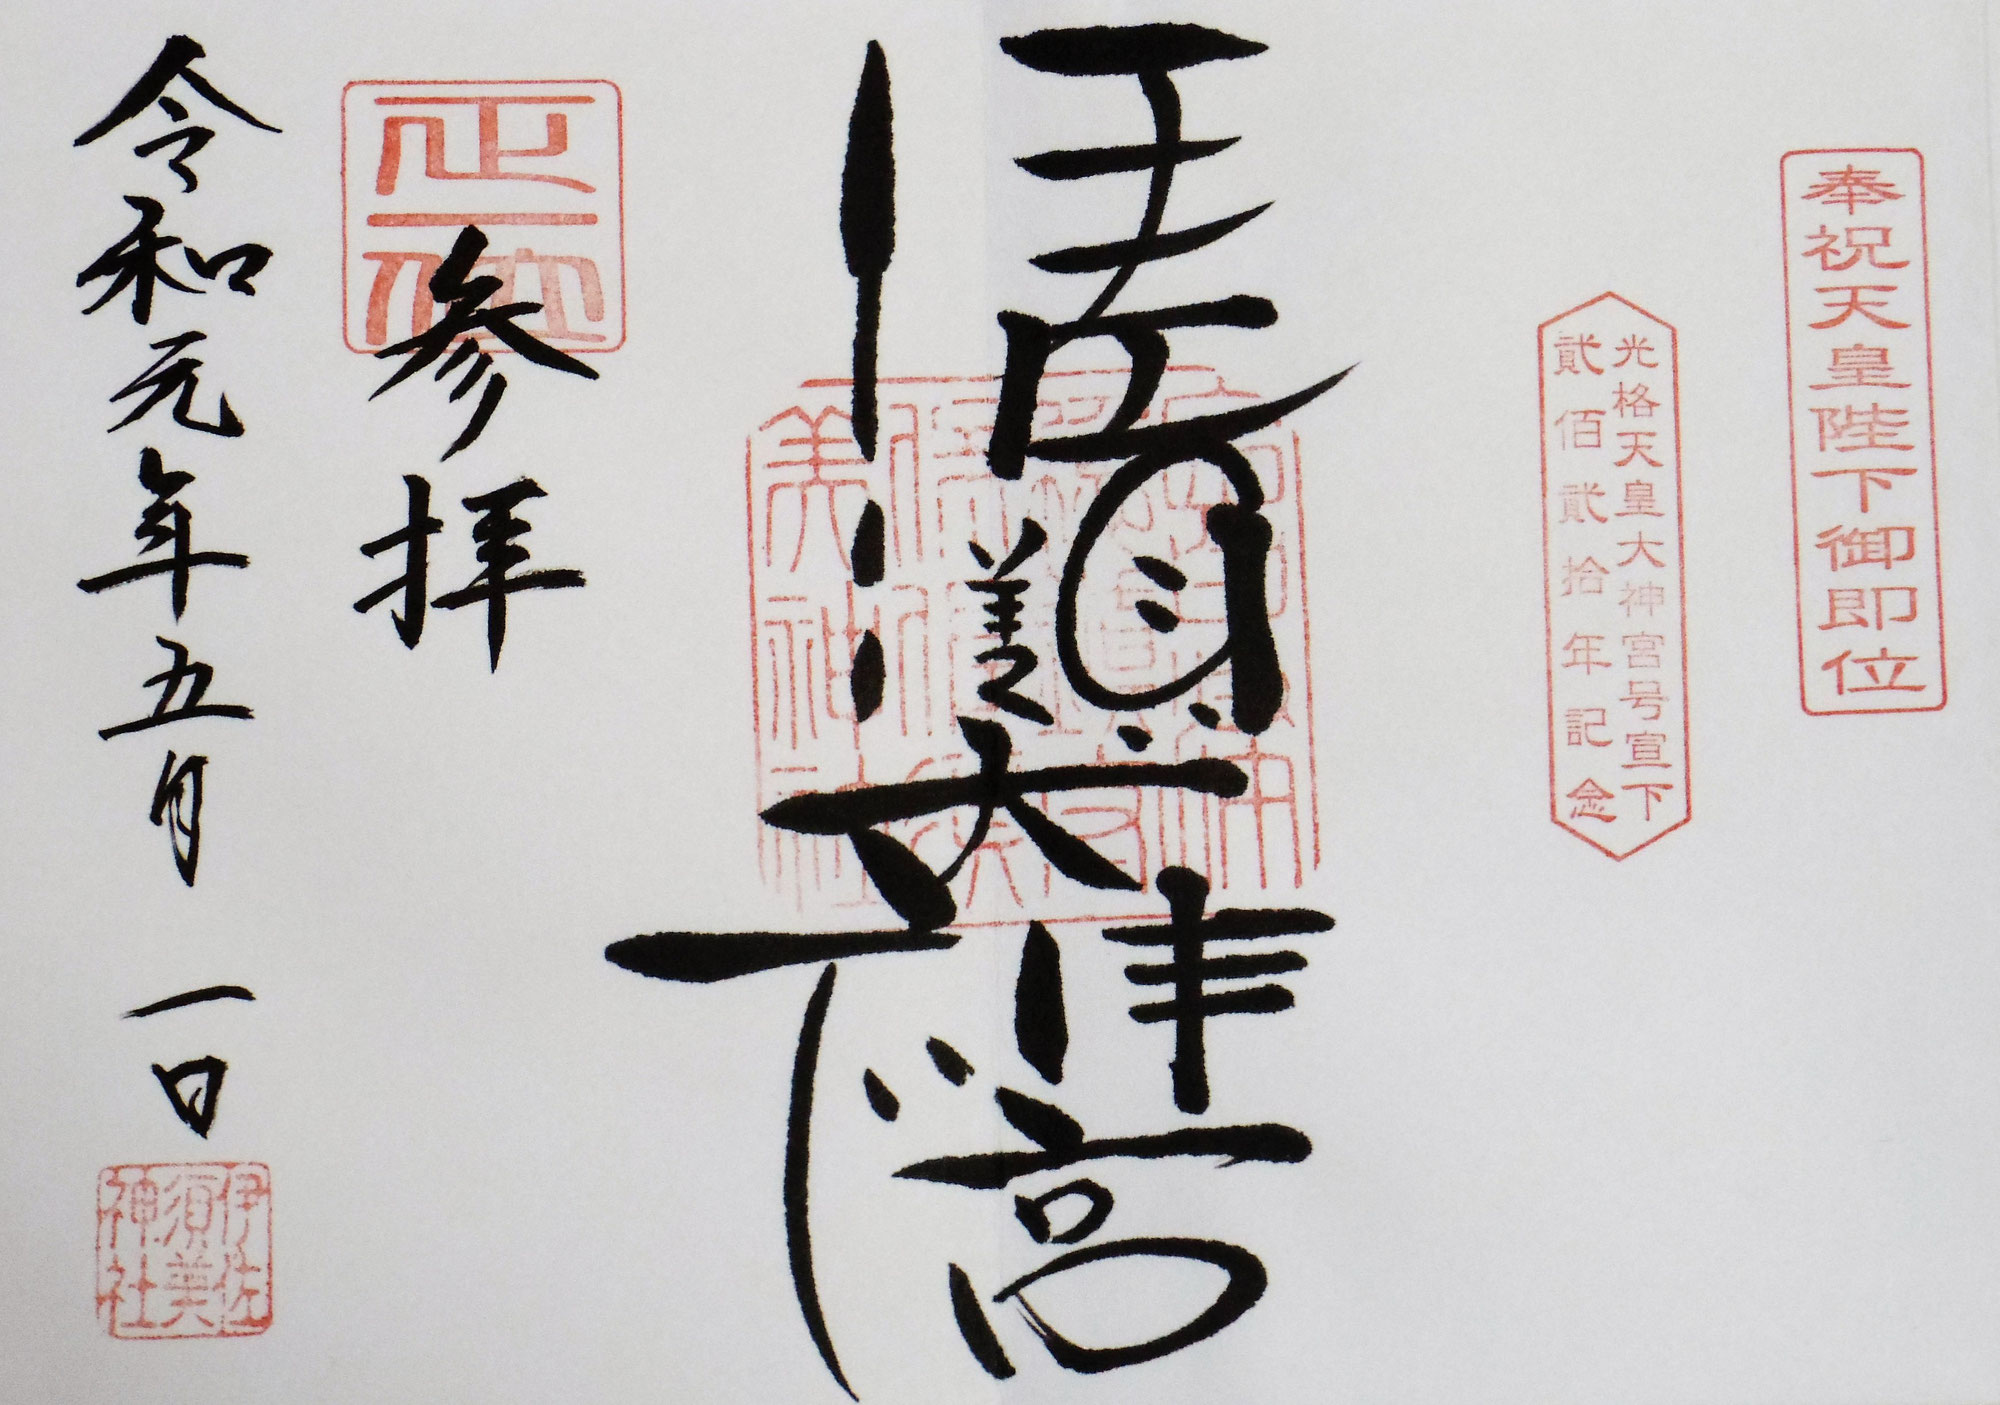 奉祝天皇陛下御即位
光格天皇大神宮号宣下
貮佰貮拾年記念
伊佐須美大神宮
正一位
参拝
令和元年五月一日
伊佐
須美
神社